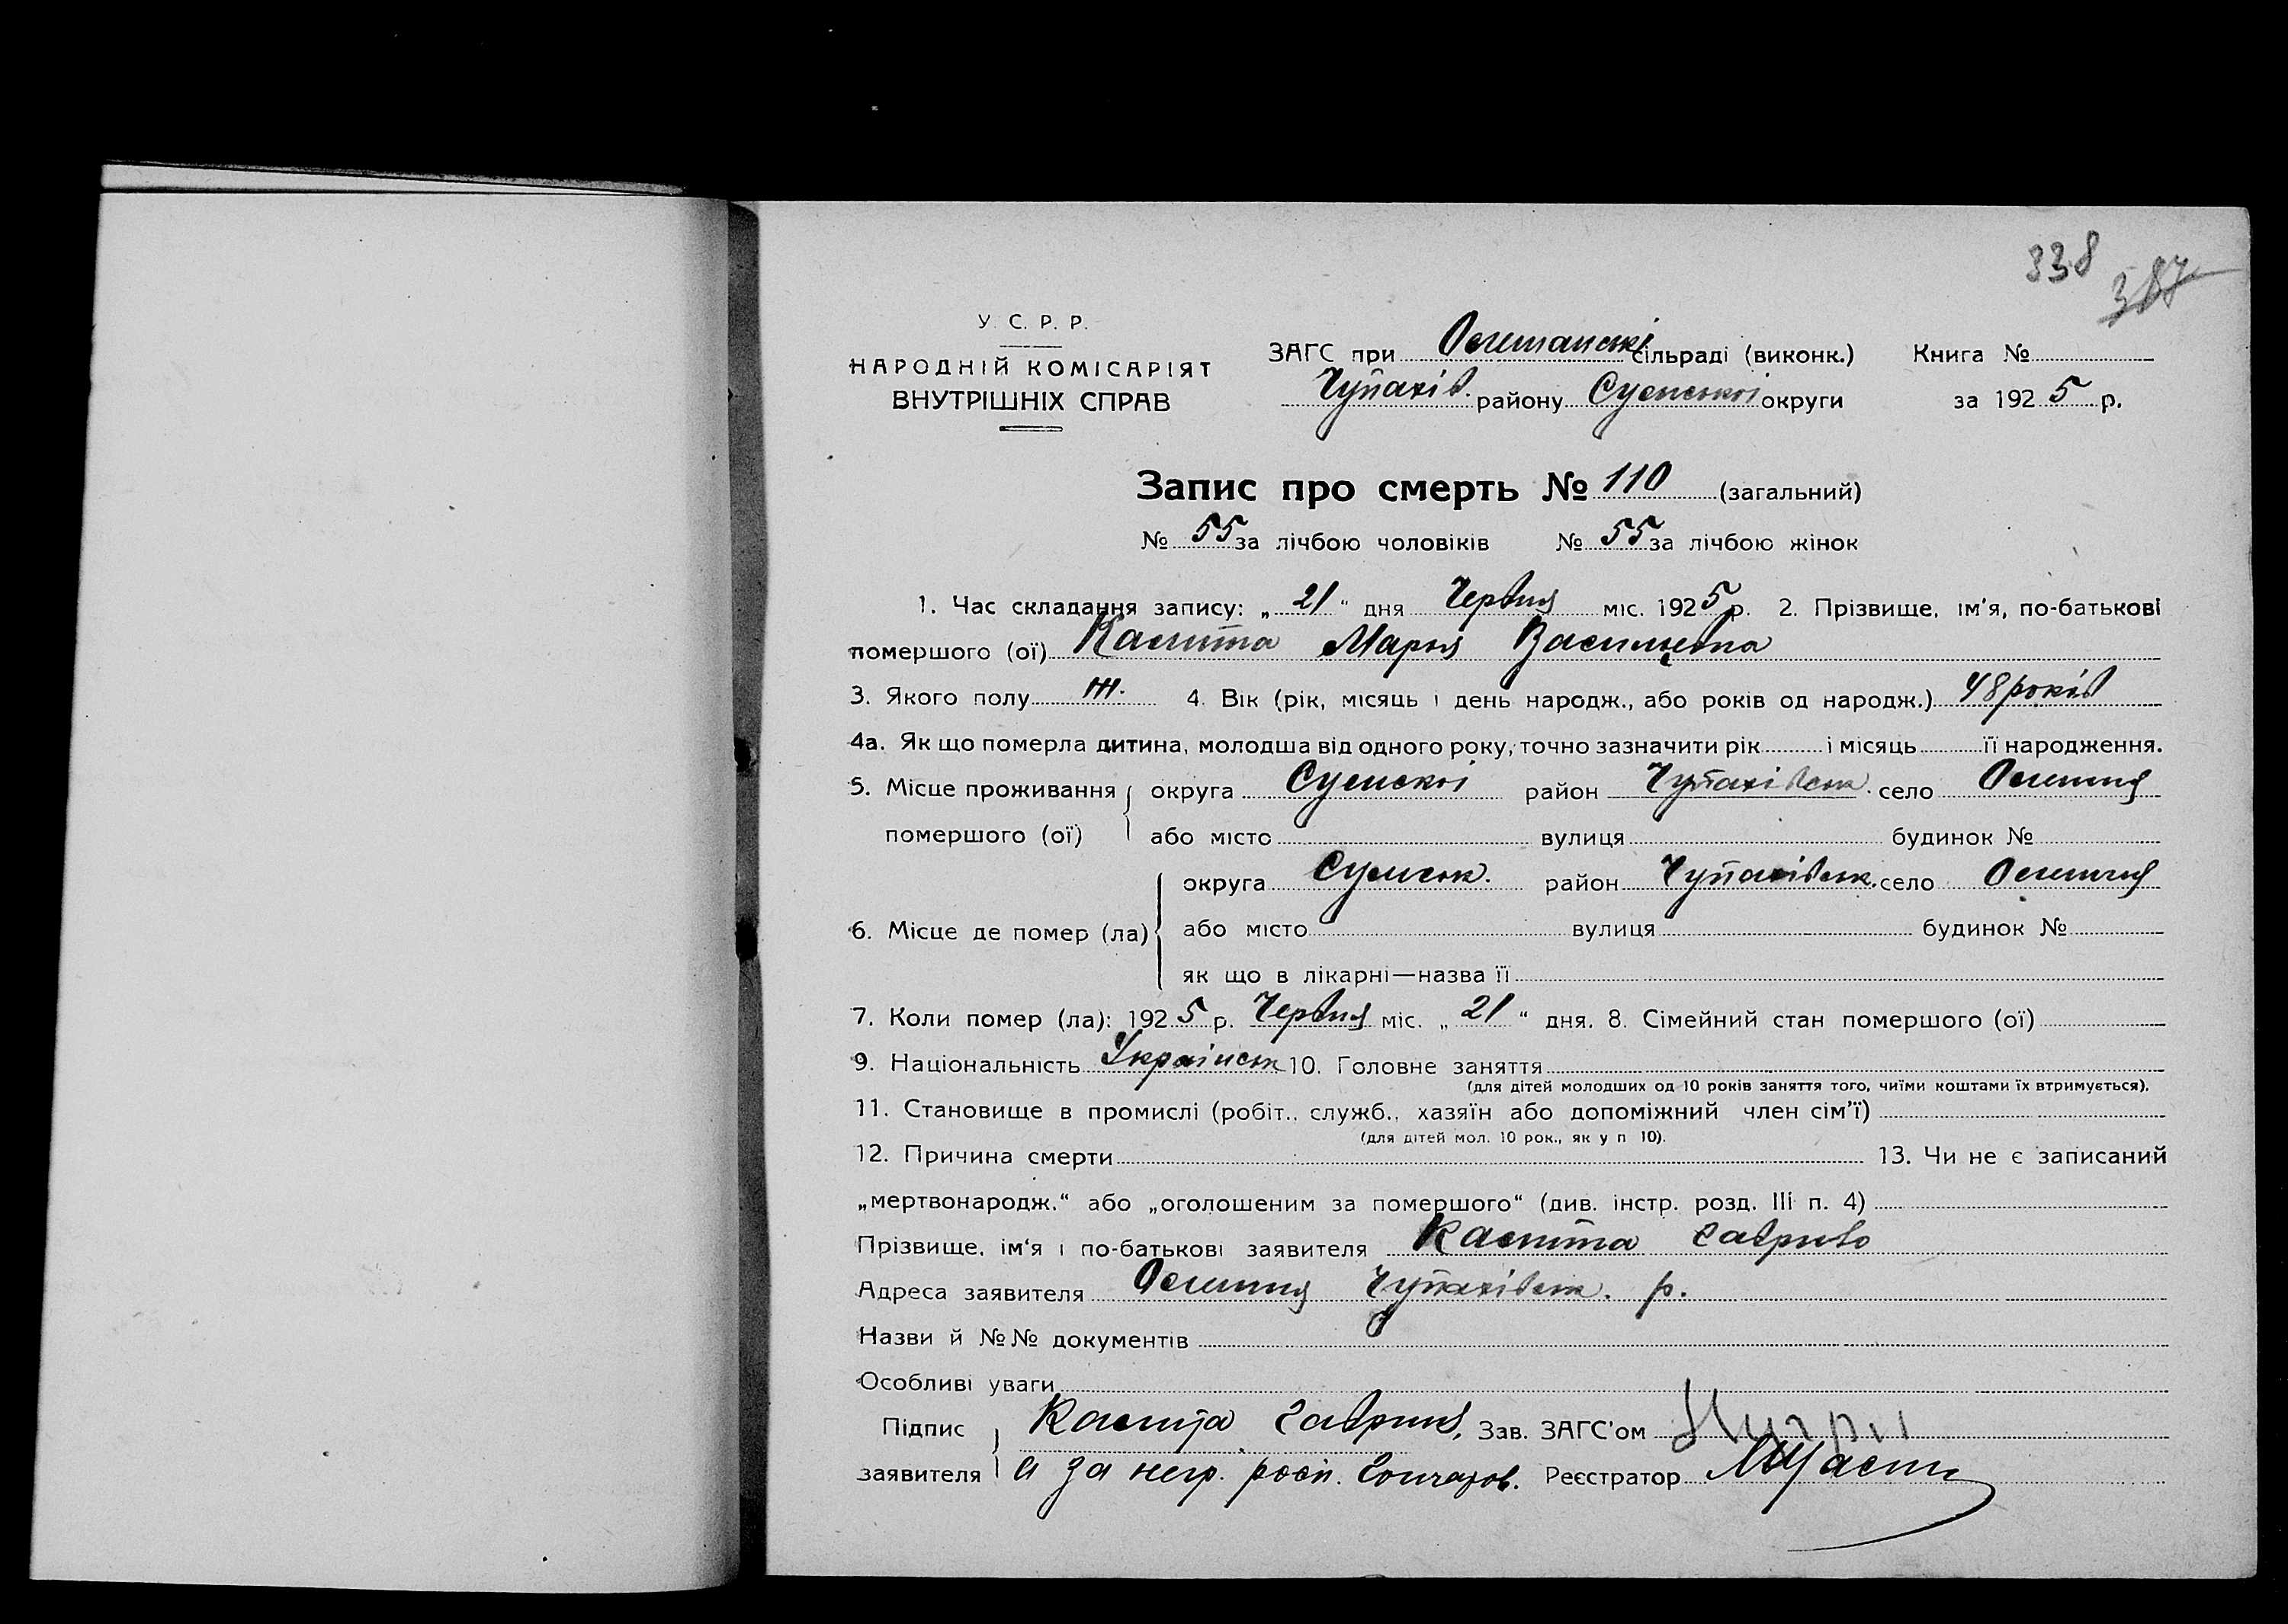 338
387
У. С. Р. Р.
НАРОДНІЙ КОМІСАРІЯТ
ВНУТРІШНІХ СПРАВ
ЗАГС при сільраді (виконк.) Книга №
Чупахів. району Сумської округи за 1925 р.
Запис про смерть № 110 (загальний)
№ 55 за лічбою чоловіків № 55 за лічбою жінок
1. Час складання запису: „21“ дня Червня міс. 1925 р. 2. Прізвище, ім'я, по-батькові
помершого (ої) Марья Васильевна
3. Якого полу ж. 4. Вік (рік, місяць і день народж., або років од народж.) 48 років
4а. Як що померла дитина, молодша від одного року, точно зазначити рік і місяць її народження.
5. Місце проживання округа Сумскої район Чупахівськ. село
помершого (ої) або місто вулиця будинок №
округа Сумськ. район Чупахівськ. село
6. Місце де помер (ла) або місто вулиця будинок №
як що в лікарні—назва її
7. Коли помер (ла): 1925 р. Червня міс. „21“ дня. 8. Сімейний стан помершого (ої)
9. Національність Украінськ 10. Головне заняття
(для дітей молодших од 10 років заняття того, чиїми коштами їх втримується).
11. Становище в промислі (робіт., служб., хазяїн або допоміжний член сім'ї)
(для дітей мол. 10 рок., як у п 10).
12. Причина смерти 13. Чи не є записаний
„мертвонародж.“ або „оголошеним за помершого“ (див. інстр. розд. III п. 4)
Прізвище, ім'я і по-батькові заявителя
Адреса заявителя Чупахівськ. р.
Назви й №№ документів
Особливі уваги
Підпис Зав. ЗАГС'ом
заявителя а за негр. росп. Гончаров. Реєстратор